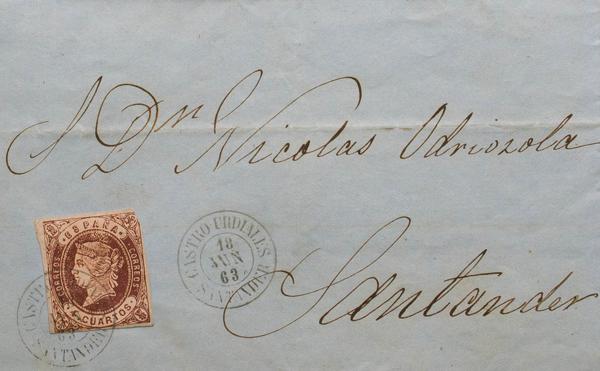 S Dn Nicolas Odriozola
Santander
ESPAÑA
CORREOS
CORREOS
4 CUARTOS
CASTRO URDIALES
18
JUN
63
SANTANDER
CAST
63
SANTANDER